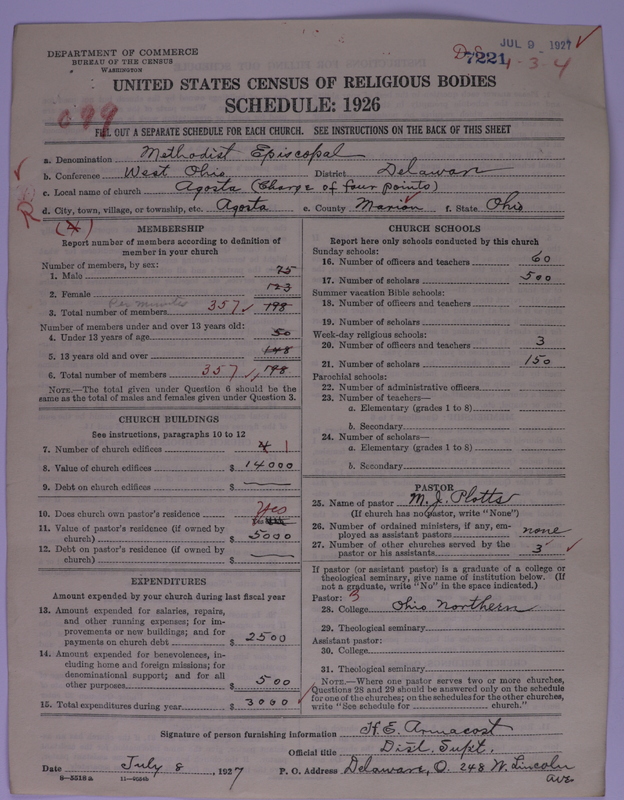 DEPARTMENT OF COMMERCE
BUREAU OF THE CENSUS
WASHINGTON
JUL 9 1927
7221
4-3-4
UNITED STATES CENSUS OF RELIGIOUS BODIES
SCHEDULE: 1926
099
FILL OUT A SEPARATE SCHEDULE FOR EACH CHURCH. SEE INSTRUCTIONS ON THE BACK OF THIS SHEET
a. Denomination Methodist Episcopal
b. Conference West Ohio District Delaware
c. Local name of church Agosta (Charge of four points)
d. City, town, village, or township, etc. Agosta e. County Marion f. State Ohio
R
(4)
MEMBERSHIP
Report number of members according to definition of
member in your church
Number of members, by sex:
1. Male 75
2. Female 123
per minutes
3. Total number of members 357 198
Number of members under and over 13 years old:
4. Under 13 years of age 50
5. 13 years old and over 148
6. Total number of members 357 198
NOTE.—The total given under Question 6 should be the
same as the total of males and females given under Question 3.
CHURCH BUILDINGS
See instructions, paragraphs 10 to 12
7. Number of church edifices 4 1
8. Value of church edifices $ 14000
9. Debt on church edifices $
10. Does church own pastor's residence Yes
11. Value of pastor's residence (if owned by
church) $ 5000
12. Debt on pastor's residence (if owned by
church) $
EXPENDITURES
Amount expended by your church during last fiscal year
13. Amount expended for salaries, repairs,
and other running expenses; for im-
provements or new buildings; and for
payments on church debt $ 2500
14. Amount expended for benevolences, in-
cluding home and foreign missions; for
denominational support; and for all
other purposes $ 500
15. Total expenditures during year $ 3000
CHURCH SCHOOLS
Report here only schools conducted by this church
Sunday schools:
16. Number of officers and teachers 60
17. Number of scholars 500
Summer vacation Bible schools:
18. Number of officers and teachers
19. Number of scholars
Week-day religious schools:
20. Number of officers and teachers 3
21. Number of scholars 150
Parochial schools:
22. Number of administrative officers
23. Number of teachers—
a. Elementary (grades 1 to 8)
b. Secondary
24. Number of scholars—
a. Elementary (grades 1 to 8)
b. Secondary
PASTOR
25. Name of pastor M. J. Plotts
(If church has no pastor, write "None")
26. Number of ordained ministers, if any, em-
ployed as assistant pastors none
27. Number of other churches served by the
pastor or his assistants 3
If pastor (or assistant pastor) is a graduate of a college or
theological seminary, give name of institution below. (If
not a graduate, write "No" in the space indicated.)
Pastor: 3
28. College Ohio Northern
29. Theological seminary
Assistant pastor:
30. College
31. Theological seminary
NOTE.—Where one pastor serves two or more churches,
Questions 28 and 29 should be answered only on the schedule
for one of the churches; on the schedules for the other churches,
write "See schedule for church."
Signature of person furnishing information H. E. Armacost
Official title Dist. Supt.
Date July 8, 1927 P. O. Address Delaware, O. 248 W. Lincoln
Ave
8-5518a